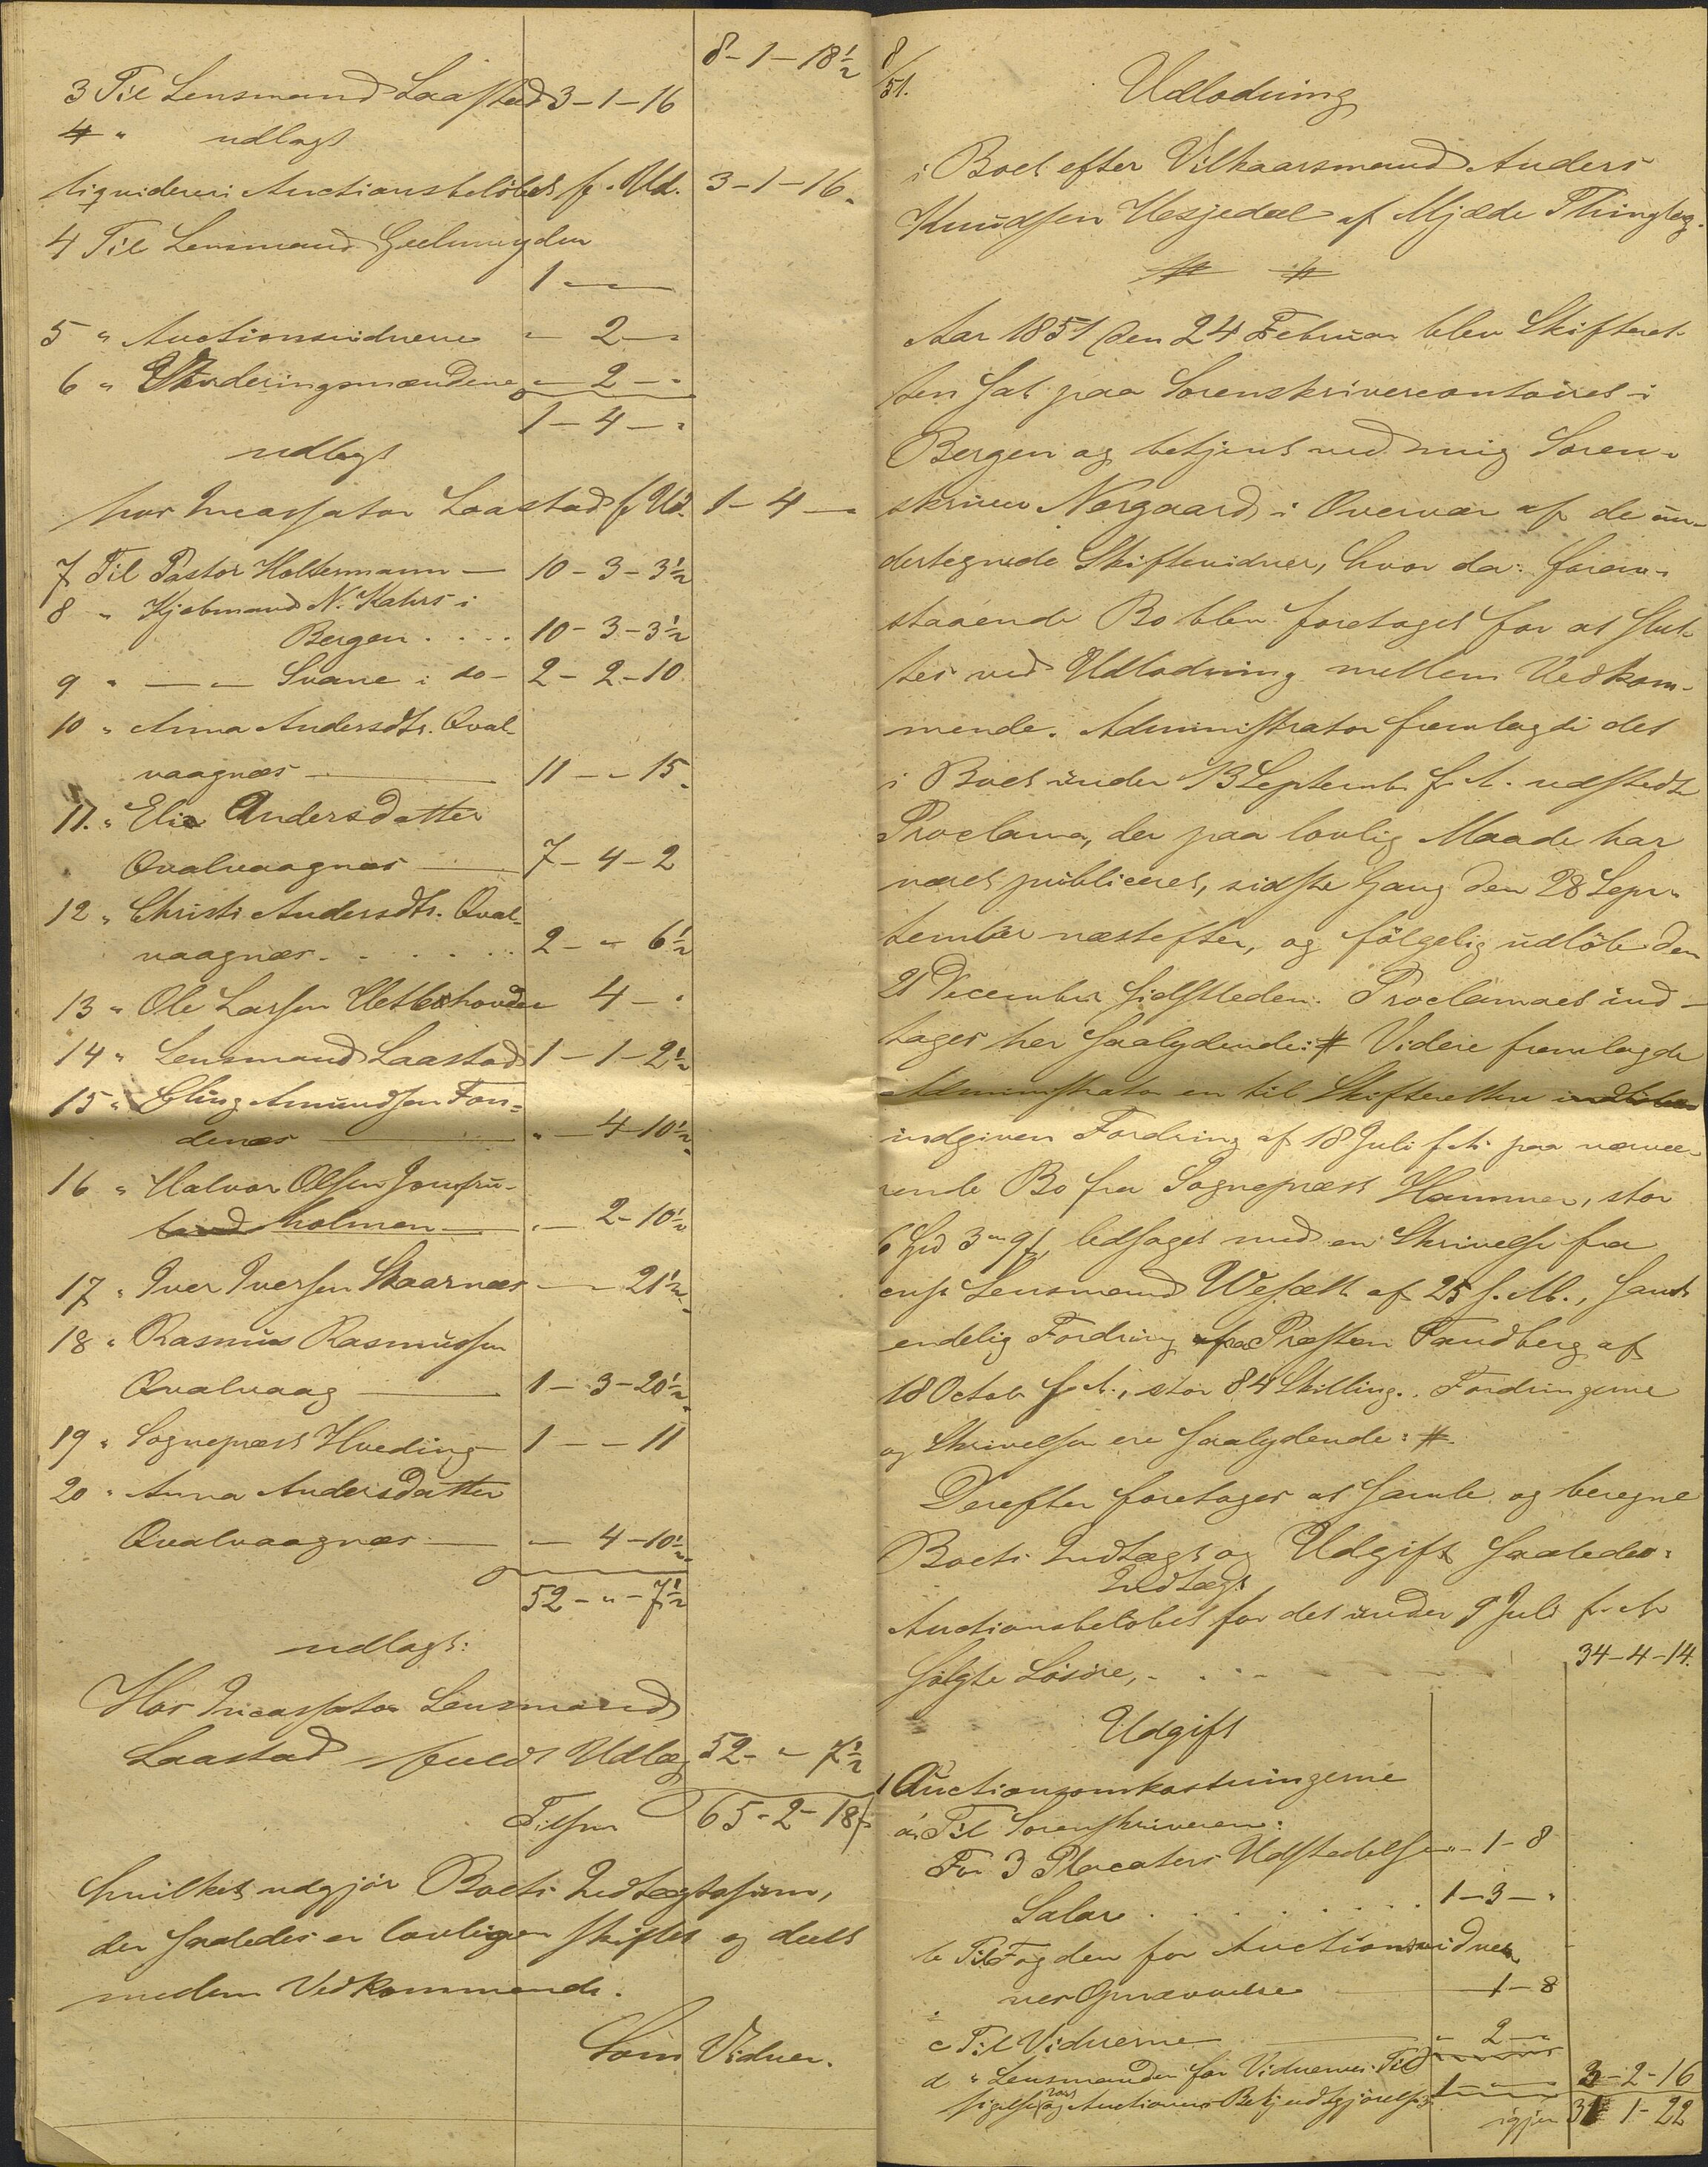 8-1-18½
3 Til Lensmand Laastad 3-1-16
4 " udlagt
liquideres i Auctionsbeløbet f. Ud. 3-1-16.
4 Til Lensmand Geelmuyden
1 -
5 " Auctionsvidnerne " 2 - "
6 " Vurderingsmændene " - 2 - "
1 - 4 - "
udlagt
hos Incassator Laastad f Ud. 1 - 4 -
7 Til Pastor Holtermann - 10 - 3 - 3½
8 " Kjøbmand N. Kahrs i
Bergen . . . . 10 - 3 - 3½
9 " - " - Svane i do - 2 - 2 - 10
10 " Anna Andersdtr. Qval-
vaagnæs - 11 - " 15.
11. " Elie Andersdatter
Qvalvaagnæs - 7 - 4 - 2
12 " Christi Andersdtr. Qval-
vaagnæs . . . . . . 2 - " 6½
13 " Ole Larsen 4 - "
14 " Lensmand Laastad 1 - 1 - 2½
15 " Elling Amundsen Fon-
denæs " - 4 - 10½
16 " Halvor Olsen Jomfru-
land holmen - " - 2 - 10½
17 " Iver Iversen Skaarnæs - " 21½
18 " Rasmus Rasmussen
Qvalvaag - 1 - 3 - 20½
19 " Sognepræst Hveding 1 - " 11
20 " Anna Andersdatter
Qvalvaagnæs - " 4 - 10½
52 - " - 7½
udlagt:
Hos Incassator Lensmand
Laastad fuldt Udlæg 52 - " 7½
Tilsm 65 - 2 - 18
hvilket udgjør Boets Indtægtssum,
der saaledes er lovligen skiftet og deelt
mellem Vedkommende.
Som Vidner.
8/51.
Udlodning
i Boet efter Vilkaarsmand Anders
Knudsen Hesjedal af Mjelde Thinglag.
# #
Aar 1851 den 24 Februar blev Skifteret-
ten sat paa Sorenskrivercontoiret i
Bergen og betjent ved mig Soren-
skriver Norgaard i Overvær af de un-
dertegnede Skiftevidner, hvor da: foran-
staaende Bo blev foretaget for at slut-
tes ved Udlodning mellem Vedkom-
mende. Administrator fremlagde det
i Boet under 13 Septemb. f. A. udstedte
Proclama, der paa lovlig Maade har
været publiceret, sidste Gang den 28 Sep-
tember næstefter, og følgelig udløb den
21 December sidstleden. Proclamaet ind-
tages her saalydende: # Videre fremlagde
Administrator en til Skifteretten
indgiven Fordring af 18 Juli f. A. paa nærvæ-
rende Bo fra Sognepræst Hammer, stor
6 Spd 3 " 9 ß, ledsaget med en Skrivelse fra
const Lensmand af 25 s. M., samt
endelig Fordring fra Præsten Sandberg af
18 Octob f. A., stor 84 Skilling. Fordringerne
og Skrivelsen ere saalydende: #.
Derefter foretoges at samle og beregne
Boets Indtægt og Udgift saaledes:
Indtægt
Auctionsbeløbet for det under 9 Juli f. A.
solgte Løsøre, - . . - 34-4-14.
Udgift
1 Auctionsomkostningerne
a, Til Sorenskriveren:
For 3 Placaters Udstedelse " - 1 - 8
Salær . . . . . . . . 1 - 3 - "
b Til Fogden for Auctionsvid-
ners Opnævnelse - 1 - 8
c Til Vidnerne - " 2 - "
d " Lensmanden for Vidnernes Til-
sigelse og Auctionens Bekjendtgjørelse 1 - 3-2-16
igjen 31 1-22